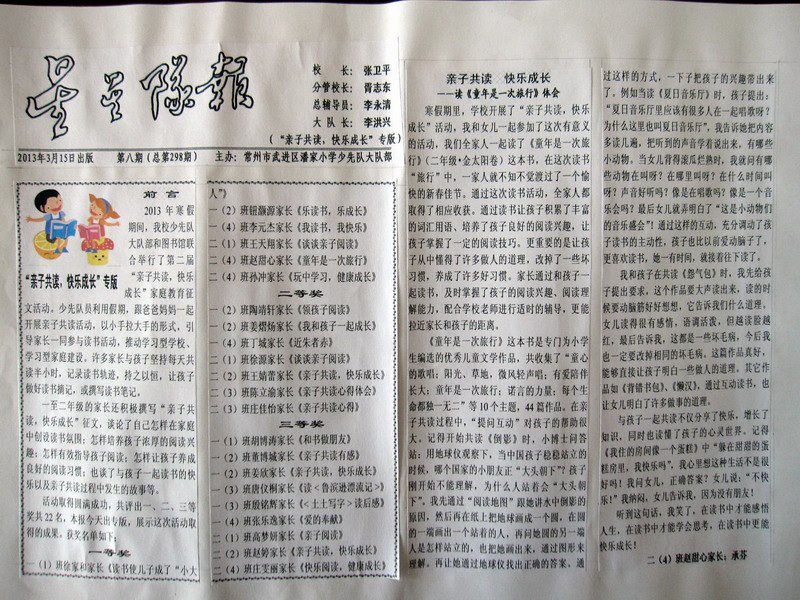 星星隊報
校 长：张卫平
分管校长：胥志东
总辅导员：李永清
大 队 长：李洪兴
（“亲子共读，快乐成长”专版）
2013年3月15日出版 第八期（总第298期） 主办：常州市武进区潘家小学少先队大队部
前 言
2013 年寒假
期间，我校少先队
大队部和图书馆联
合举行了第二届
“亲子共读，快乐
成长”家庭教育征
“亲子共读，快乐成长”专版
文活动。少先队员利用假期，跟爸爸妈妈一起
开展亲子共读活动，以小手拉大手的形式，引
导家长一同参与读书活动，推动学习型学校、
学习型家庭建设。许多家长与孩子坚持每天共
读半小时，记录读书轨迹，持之以恒，让孩子
做好读书摘记，或撰写读书笔记。
一至二年级的家长还积极撰写“亲子共
读，快乐成长”征文，谈论了自己怎样在家庭
中创设读书氛围；怎样培养孩子浓厚的阅读兴
趣；怎样有效指导孩子阅读；怎样让孩子养成
良好的阅读习惯；也谈了与孩子一起读书的快
乐以及亲子共读过程中发生的故事等。
活动取得圆满成功，共评出一、二、三等
奖共 22 名，本报今天出专版，展示这次活动取
得的成果。获奖名单如下：
一等奖
一（1）班徐家和家长《读书使儿子成了“小大
人”》
一（2）班钮灏源家长《乐读书，乐成长》
一（4）班李元杰家长《我读书，我快乐》
二（1）班王天翔家长《谈谈亲子阅读》
二（4）班赵甜心家长《童年是一次旅行》
二（4）班孙冲家长《玩中学习，健康成长》
二等奖
一（2）班陶靖轩家长《领孩子阅读》
一（2）班姜熠炀家长《我和孩子一起成长》
一（4）班丁城家长《近朱者赤》
二（1）班徐源家长《谈谈亲子阅读》
二（2）班王婧蕾家长《亲子共读，快乐成长》
二（3）班陈立渝家长《亲子共读心得体会》
二（3）班庄佳怡家长《亲子共读心得》
三等奖
一（1）班胡博涛家长《和书做朋友》
一（2）班董博城家长《亲子共读有感》
一（2）班姜欣家长《亲子共读，快乐成长》
一（3）班唐仪桐家长《读＜鲁滨逊漂流记＞》
一（3）班殷铭辉家长《＜土土写字＞读后感》
一（4）班张乐逸家长《爱的奉献》
二（1）班高梦妍家长《亲子阅读》
二（2）班赵婷家长《亲子共读，快乐成长》
二（4）班庄雯丽家长《快乐阅读，健康成长》
亲子共读 快乐成长
——读《童年是一次旅行》体会
寒假期里，学校开展了“亲子共读，快乐
成长”活动，我和女儿一起参加了这次有意义
的活动，我们全家人一起读了《童年是一次旅
行》（二年级·金太阳卷）这本书，在这次读书
“旅行”中，一家人就不知不觉渡过了一个愉
快的新春佳节。通过这次读书活动，全家人都
取得了相应收获。通过读书让孩子积累了丰富
的词汇用语、培养了孩子良好的阅读兴趣，让
孩子掌握了一定的阅读技巧。更重要的是让孩
子从中懂得了许多做人的道理，改掉了一些坏
习惯，养成了许多好习惯。家长通过和孩子一
起读书，及时掌握了孩子的阅读兴趣、阅读理
解能力，配合学校老师进行适时的辅导，更能
拉近家长和孩子的距离。
《童年是一次旅行》这本书是专门为小学
生编选的优秀儿童文学作品，共收集了“童心
的歌唱：阳光、草地，微风轻声唱；有爱陪伴
长大；童年是一次旅行；诺言的力量；每个生
命都独一无二”等 10 个主题，44 篇作品。在亲
子共读过程中，“提问互动”对孩子的帮助很
大，记得开始共读《倒影》时，小博士问答
站：用地球仪观察下，当中国孩子稳稳站立的
时候，哪个国家的小朋友正“大头朝下”？孩子
刚开始不能理解，为什么人站着会“大头朝
下”。我先通过“阅读地图”跟她讲水中倒影的
原因，然后再在纸上把地球画成一个圆，在圆
的一端画出一个站着的人，再问她圆的另一端
人是怎样站立的，也把她画出来，通过图来
理解。再让她通过地球仪找出正确的答案。通
过这样的方式，一下子把孩子的兴趣带出来
了。例如当读《夏日音乐厅》时，孩子提出：
“夏日音乐厅里应该有很多人在一起唱歌呀？
为什么这里也叫夏日音乐厅”，我告诉她把内容
多读几遍，把听到的声音学着说出来，有哪些
小动物。当女儿背得滚瓜烂熟时，我就问有哪
些动物在叫呀？在哪里叫呀？在什么时间叫
呀？声音好听吗？像是在唱歌吗？像是一个音
乐会吗？最后女儿就弄明白了“这是小动物们
的音乐盛会”！通过这样的互动，充分调动了孩
子读书的主动性，孩子也比以前爱动脑子了，
更喜欢读书，她一有时间，就接着往下读了。
我和孩子在共读《怨气包》时，我先给孩
子提出要求，这个作品要大声读出来，读的时
候要动脑筋好好想想，它告诉我们什么道理，
女儿读得很有感情，语调活泼，但越读脸越
红，最后告诉我，这都是一些坏毛病，今后我
也一定要改掉相同的坏毛病。这篇作品真好，
能够直接让孩子明白一些做人的道理。其它作
品如《背错书包》、《懒汉》，通过互动读书，也
让女儿明白了许多做事的道理。
与孩子一起共读不仅分享了快乐，增长了
知识，同时也读懂了孩子的心灵世界。记得
《我住的房间像一个蛋糕》中“躲在甜甜的蛋
糕房里，我快乐吗”，我心里想这种生活不是很
好吗！我问女儿，正确答案？女儿说：“不快
乐！”我纳闷，女儿告诉我，因为没有朋友！
听到这句话，我笑了，在读书中才能感悟
人生，在读书中才能学会思考，在读书中更能
快乐成长！
二（4）班赵甜心家长：承芬